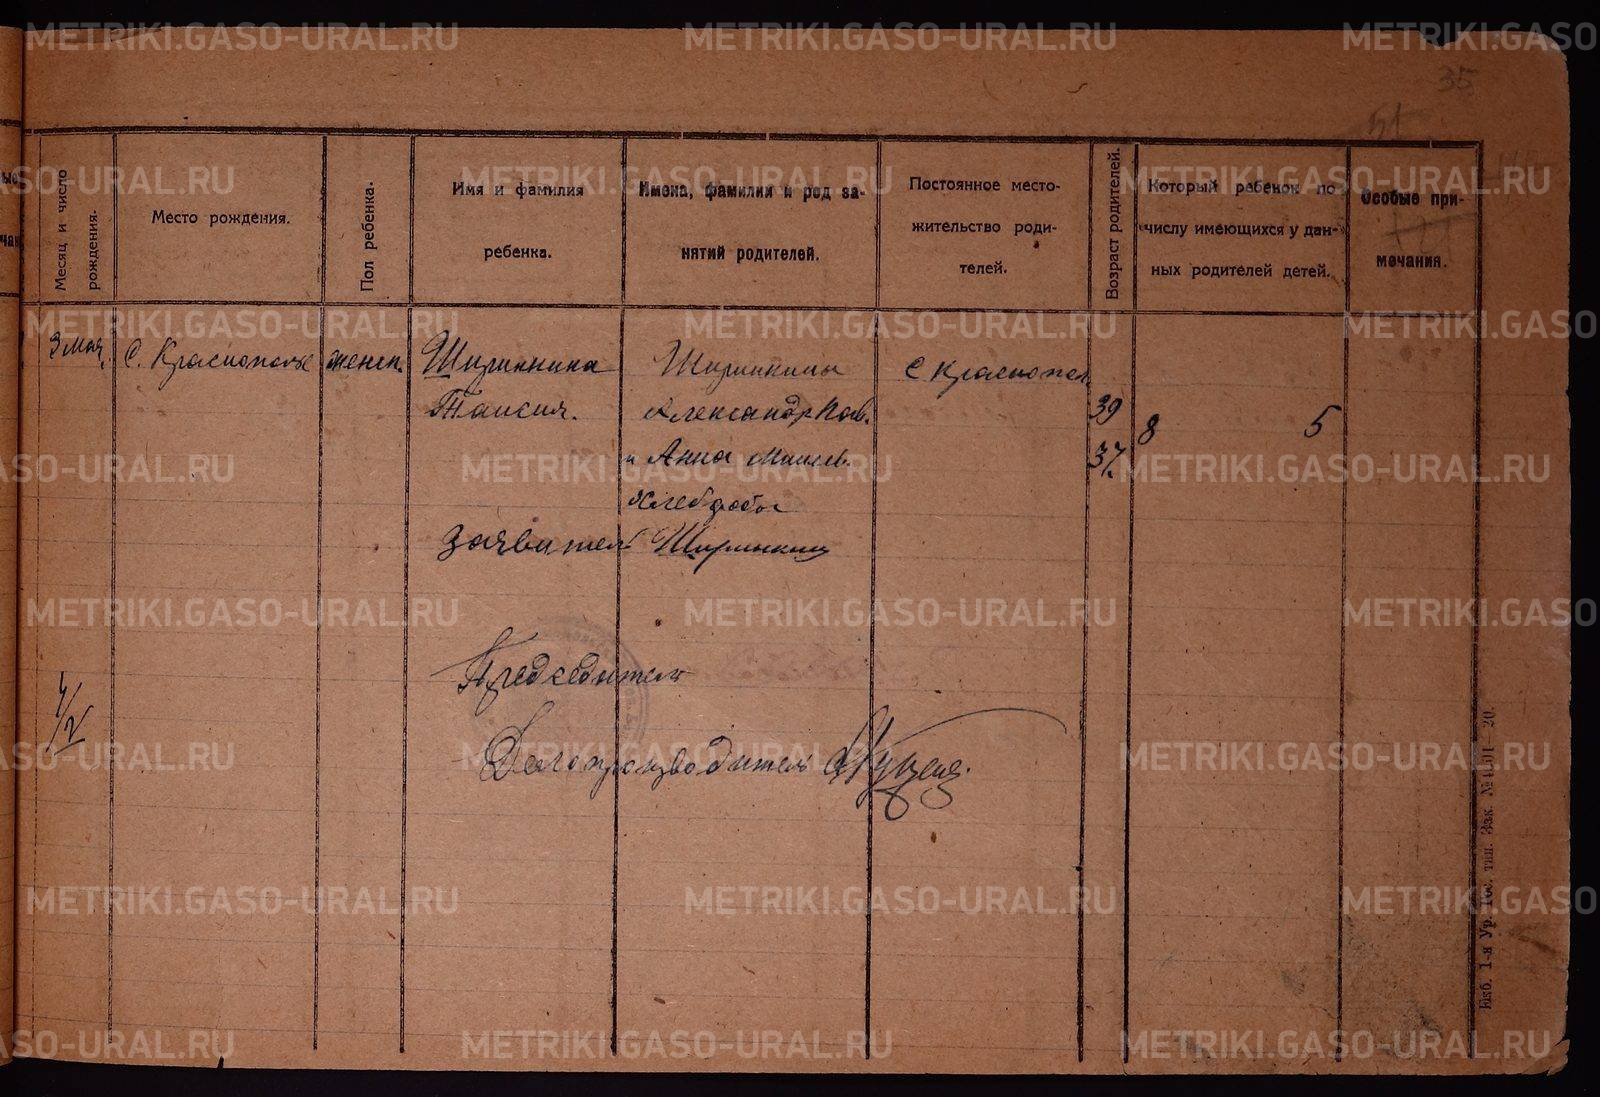 METRIKI.GASO-URAL.RU METRIKI.GASO-URAL.RU METRIKI.GASO
35
51
Месяц и число рождения.
Место рождения.
Пол ребенка.
Имя и фамилия
ребенка.
Имена, фамилия и род за-
нятий родителей.
Постоянное место-
жительство роди-
телей.
Возраст родителей.
Который ребенок по
числу имеющихся у дан-
ных родителей детей.
Особые при-
мечания.
3 мая.
С. Краснополье
женск.
Ширинкина
Таисия.
Ширинкины
Александр
и Анна
Хлебаробы
С Краснополь
39
37.
8 5
Заявитель Ширинкин
Председатель
Делопроизводитель
Екб. 1-я Ур. Гос. тип. Зак. № 4501—20.